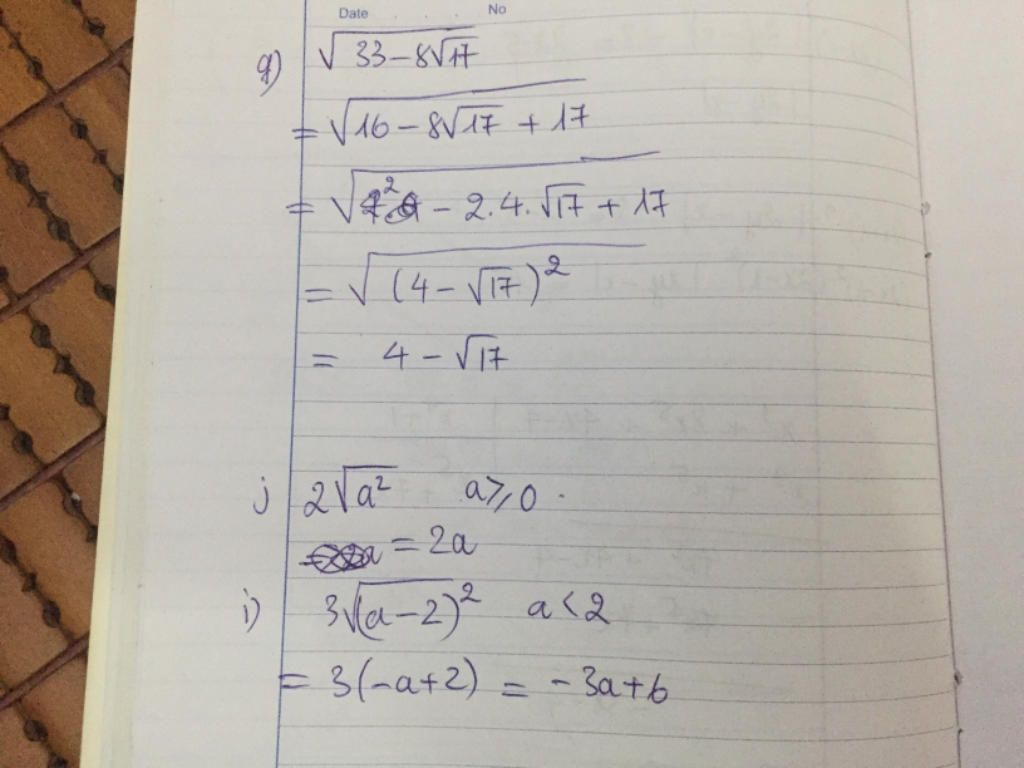 Date No
g) √(33-8√17)
= √(16-8√17+17)
= √(4²-2.4.√17+17)
= √((4-√17)²)
= 4-√17
j 2√a² a≥0.
= 2a
i) 3√(a-2)² a<2
= 3(-a+2) = -3a+6